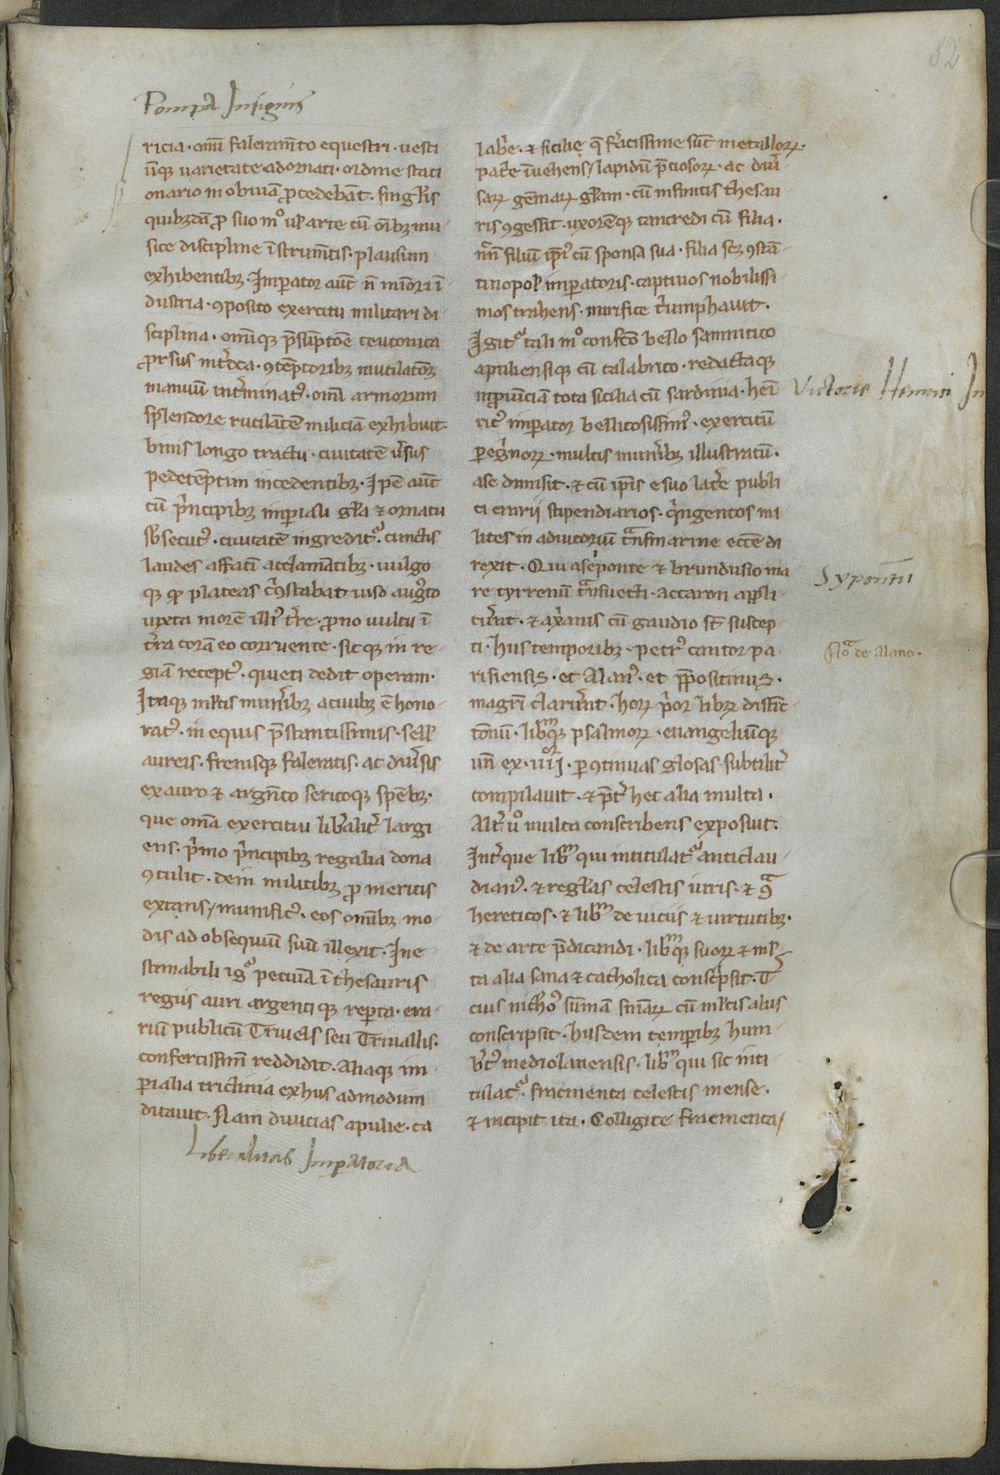 82
Pompa Insignis
ricia · om̄i faleram̄to equestri · uesti
ūq; uarietate adornati · ordine stati
onario in obuiā ꝓcedebāt · singl̄is
quibzdā ꝓ suo mͦ ul̓ arte cū om̄ibz mu
sice discipline īstrum̄tis · plausum
exhibentibz · Imꝑator aut̄ n̄ minori ī
dustria · ꝯposito exercitu militari di
sciplina · omīq; p̄sūptōe teutonica
ꝓrsus int̓dca · ꝯtēptoribz mutilatōēz
manuū int̓minat᷒ · om̄i armorum
splendore rutilātē miliciam exhibuit ·
binis longo tractu · ciuitatē uersus
pedetēptim incedentibz · Ip̄e aut̄
cū p̓ncipibz imꝑiali gl̄a ⁊ ornatu
sb̓secut᷒ · ciuitatē ingredit̓ · cunctis
laudes affatī acclamātibz · uulgo
q; ꝙ plateas c̓ꝯstabat uiso augͦto
iuxta morē illi᷒ t̓re · prono uultu ī
t̓ra corā eo corruente · sicq; in re
giā recept᷒ · quieti dedit operam ·
Itaq; ml̓tis mun̓ibz a ciuibz ē hono
rat᷒ · in equis p̄stantissimis · sell̓
aureis · frenisq; faleratis · ac diu̓sis
ex auro ⁊ argēto sericoq; spēbz ·
que om̄ia exercitui lib̓alit̓ largi
ens · p̓mo p̓ncipibz regalia dona
ꝯtulit · dein militibz ꝓ meritis
extans / munific᷒ · eos om̄ibz mo
dis ad obsequiū suū illexit · Ine
stimabili ig̓ pecunia ī thesauris
regiis auri argentiq; reꝑta · era
riū publicū Triuels seu Triuallis ·
confertissimū reddidit · Aliaq; im
ꝑialia triclinia ex hiis admodum
ditauit · Nam diuicias apulie · ca
Liberalitas Imperatoria
labr̓e · ⁊ sicilie q̄ feracissime sūt metallorꝝ ·
patr̓e īuehens / lapidū p̄ciosorꝝ · ac diu̓
sarꝝ gēmarꝝ gl̄am · cū infinitis thesau
ris ꝯgessit · uxorēq; tancredi cū filia ·
nn̄ filiū ip̄i᷒ cū sponsa sua · filia scz ꝯstā
tinopol̓ imꝑatoris · captiuos nobilissi
mos trahens · mirifice t̓umphauit ·
Igit̓ tali mͦ confcō bello samnitico
apuliensiq; cū calabrico · redactaq;
in ꝓuinciā tota sicilia cū sardinia · hēn
ric᷒ imperator bellicosissim᷒ · exercitū
ꝑeg̓norꝝ · multis mun̓ibz illustratū ·
a se dimisit · ⁊ cū ip̄is e suo lat̓e publi
ci erarii stipendiarios · q̓ngentos mi
lites in adiutoriū tͣnsmarine ecc̄e di
rexit · Qui a seponte ⁊ brundusio ma
re tyrrenū tͣnsuecti · accaron appli
c̓unt · ⁊ a xp̓ianis cū gaudio st̄ suscep
ti · hiis temporibz · petr᷒ cantor pa
risiensis · et Alan᷒ · et p̄positinus ·
magr̄i claru̓nt · horꝝ p̓or librꝝ distīc
tionū · libmq; psalmorꝝ · euangeliūq;
un̄ ex · iiiior · ꝑ ꝯtinuas glosas subtilit̓
compilauit · ⁊ p̄t̓ hec alia multa ·
Alt̓ uͦ multa conscribens exposuit ·
Int̓ que libm qui intitulat̓ anticlau
dian᷒ · ⁊ regl̓as celestis iuris · ⁊ ꝯͣ
hereticos · ⁊ libm de uiciis ⁊ uirtutibz ·
⁊ de arte p̄dicandi · libmq; suorꝝ ⁊ ml̓
ta alia sana ⁊ catholica consc̓psit · T̄
cius nich̓o᷒ sūmā sn̄iarꝝ cū ml̓tis aliis
conscripsit · hiisdem temꝑibz hum
b̓t᷒ mediolanensis · libm qui sic inti
tulat̓ · fracmenta celestis mense ·
⁊ incipit ita · Colligite fracmenta /
Victoria Henrici Im
Syponti
Noͣ de Alano ·